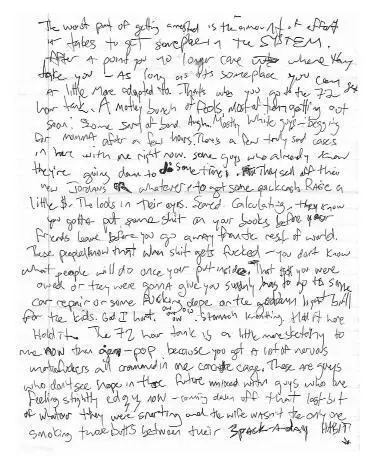 The worst part of getting arrested is the amount of effort
it takes to get someplace in the SYSTEM.
After a point you no longer care where they
take you - As long as its someplace you can
A little more adapted to. Thats who you got the 72
hour tank. A motley bunch of fools, most of them getting out
soon: some sort of bond. Mostly white guys - begging
for momma after a few hours. There's a few truly sad cases
in here with me right now. some guys who already know
they're going down to do some time. They sell off their
new Jordans or whatever to get some together a
little $. The looks in their eyes. Scared. Calculating - they know
you gotta put some shit on your books before your
friends leave before you go away from the rest of world.
These people know that when shit gets fucked - you dont know
what people will do once your put inside. That $ you were
owed or they were gonna give you suddenly has to go to some
car repair or some fucking dope or the goddamn light bill
for the kids. God I hate, ow ow ow. Stomach knotting. Hold it
Hold it. The 72 hour tank is a little more sketchy to
me now than gen-pop because you got a lot of nervous
motherfuckers all crammed in one concrete cage. These are guys
who dont see hope in their future mixed with guys who are
feeling slightly edgy now - coming down off that last bit
of whatever they were snorting and the wife wasn't the only one
smoking those butts between their 3 pack-A-day HABIT